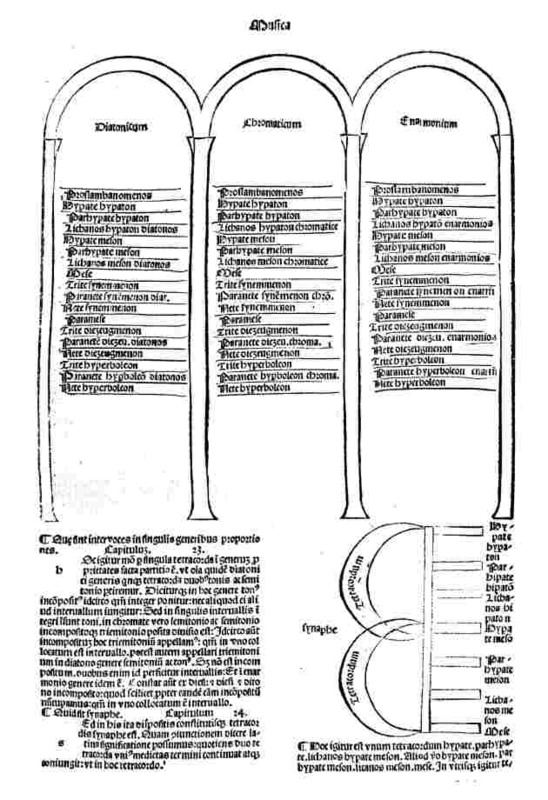 Musica
Diatonicum
Proslambanomenos
Hypate hypaton
Parhypate hypaton
Lichanos hypaton diatonos
Hypate meson
Parhypate meson
Lichanos meson diatonos
Mese
Trite synemmenon
Paranete synēmenon diat.
Nete synemmenon
Paramese
Trite diezeugmenon
Paranete diezeu. diatonos
Nete diezeugmenon
Trite hyperboleon
Paranete hypboleō diatonos
Nete hyperboleon
Chromaticum
Proslambanomenos
Hypate hypaton
Parhypate hypaton
Lichanos hypaton chromatice
Hypate meson
Parhypate meson
Lichanos meson chromatice
Mese
Trite synemmenon
Paranete synēmenon chrō.
Nete synemmenon
Paramese
Trite diezeugmenon
Paranete diezeu. chroma.
Nete diezeugmenon
Trite hyperboleon
Paranete hypboleon chroma.
Nete hyperboleon
Enarmonium
Proslambanomenos
Hypate hypaton
Parhypate hypaton
Lichanos hypatō enarmonios
Hypate meson
Parhypate meson
Lichanos meson enarmonios
Mese
Trite synemmenon
Paranete synemenon enarm
Nete synemmenon
Paramese
Trite diezeugmenon
Paranete diezeu. enarmonios
Nete diezeugmenon
Trite hyperboleon
Paranete hyperboleon enarm
Nete hyperboleon
¶ Que sint inter voces in singulis generibus proportio
nes. Capitulū. 23.
b
ci generis qnqȝ tetracorda
tonio partiremur. Diciturqȝ in hoc genere ton
incōposit idcirco qm̄ integer ponitur: nec aliquod ei ali
ud interuallum iungitur: Sed in singulis interuallis ī
tegri sunt toni. in chromate vero semitonio ac semitonio
incompositoqȝ triemitonio posita diuisio est: Idcirco aūt
incompositum hoc triemitonium appellam: qm̄ in vno col
locatum est interuallo. potest autem appellari triemitoni
um in diatono genere semitoniū ac ton. Sȝ nō est incom
positum. duobus enim id perficitur interuallis: Et ī enar
monio genere idem ē. Constat aūt ex diesi: ⁊ diesi ⁊ dito
no incomposito: quod scilicet ppter eandē cām incōpositū
nūcupamus: qm̄ in vno collocatum ē interuallo.
¶ Quid sit synaphe. Capitulum 24.
s
Ed in his ita dispositis constitutisqȝ tetracor
dis synaphe est. Quam coniunctionem dicere la
tina significatione possumus: quotiens duo te
tracorda vni medietas termini continuat atqȝ
coniungit: vt in hoc tetracordo.
Tetracordum
synaphe
Tetracordum
Hy-
pate
hypa-
ton
Par-
hipate
hipatō
Licha-
nos hi
paton
Hypa
te meso
Par-
hypate
meson
Licha-
nos me
son
Mese
¶ Hoc igitur est vnum tetracordum hypate. parhypa-
te. lichanos hypaton. Aliud vo hypate meson. par
hypate meson. licanos meson. mese. In vtrisqȝ igitur te